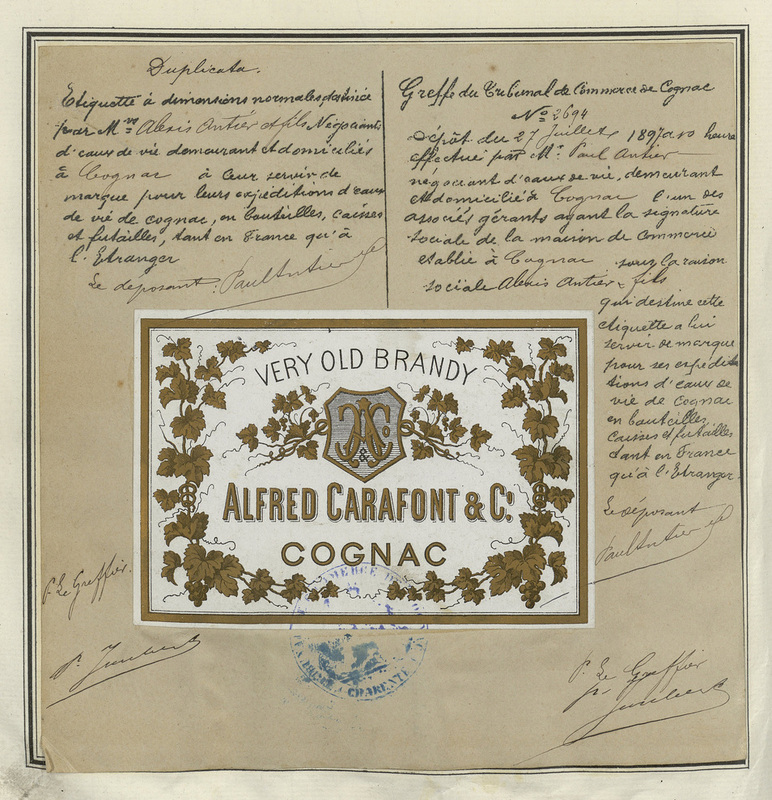 Duplicata.
Etiquette à dimensions normales, destinée
par Mrs Alexis Antier et fils Négociants
d'eaux de vie demeurant et domiciliés
à Cognac à leur servir de
marque pour leurs expéditions d'eaux
de vie de cognac, en bouteilles, caisses
et futailles, tant en France qu'à
l'Etranger
Le déposant: Paul Antier
Greffe du Tribunal de Commerce de Cognac
No 2694
Dépôt du 27 Juillet 1897 à 10 heures
effectué par Mr. Paul Antier
négociant d'eaux de vie, demeurant
et domicilié à Cognac l'un des
associés gérants ayant la signature
sociale de la maison de commerce
établie à Cognac sous la raison
sociale Alexis Antier & fils
qui destine cette
étiquette a lui
servir de marque
pour ses expédi-
tions d'eaux de
vie de cognac
en bouteilles,
caisses et futailles
tant en France
qu'à l'Etranger.
Le déposant
Paul Antier
VERY OLD BRANDY
AC & Co
ALFRED CARAFONT & Co.
COGNAC
P. Le Greffier.
P. Joubert
COMMERCE
CHARENTE
P. Le Greffier
Joubert